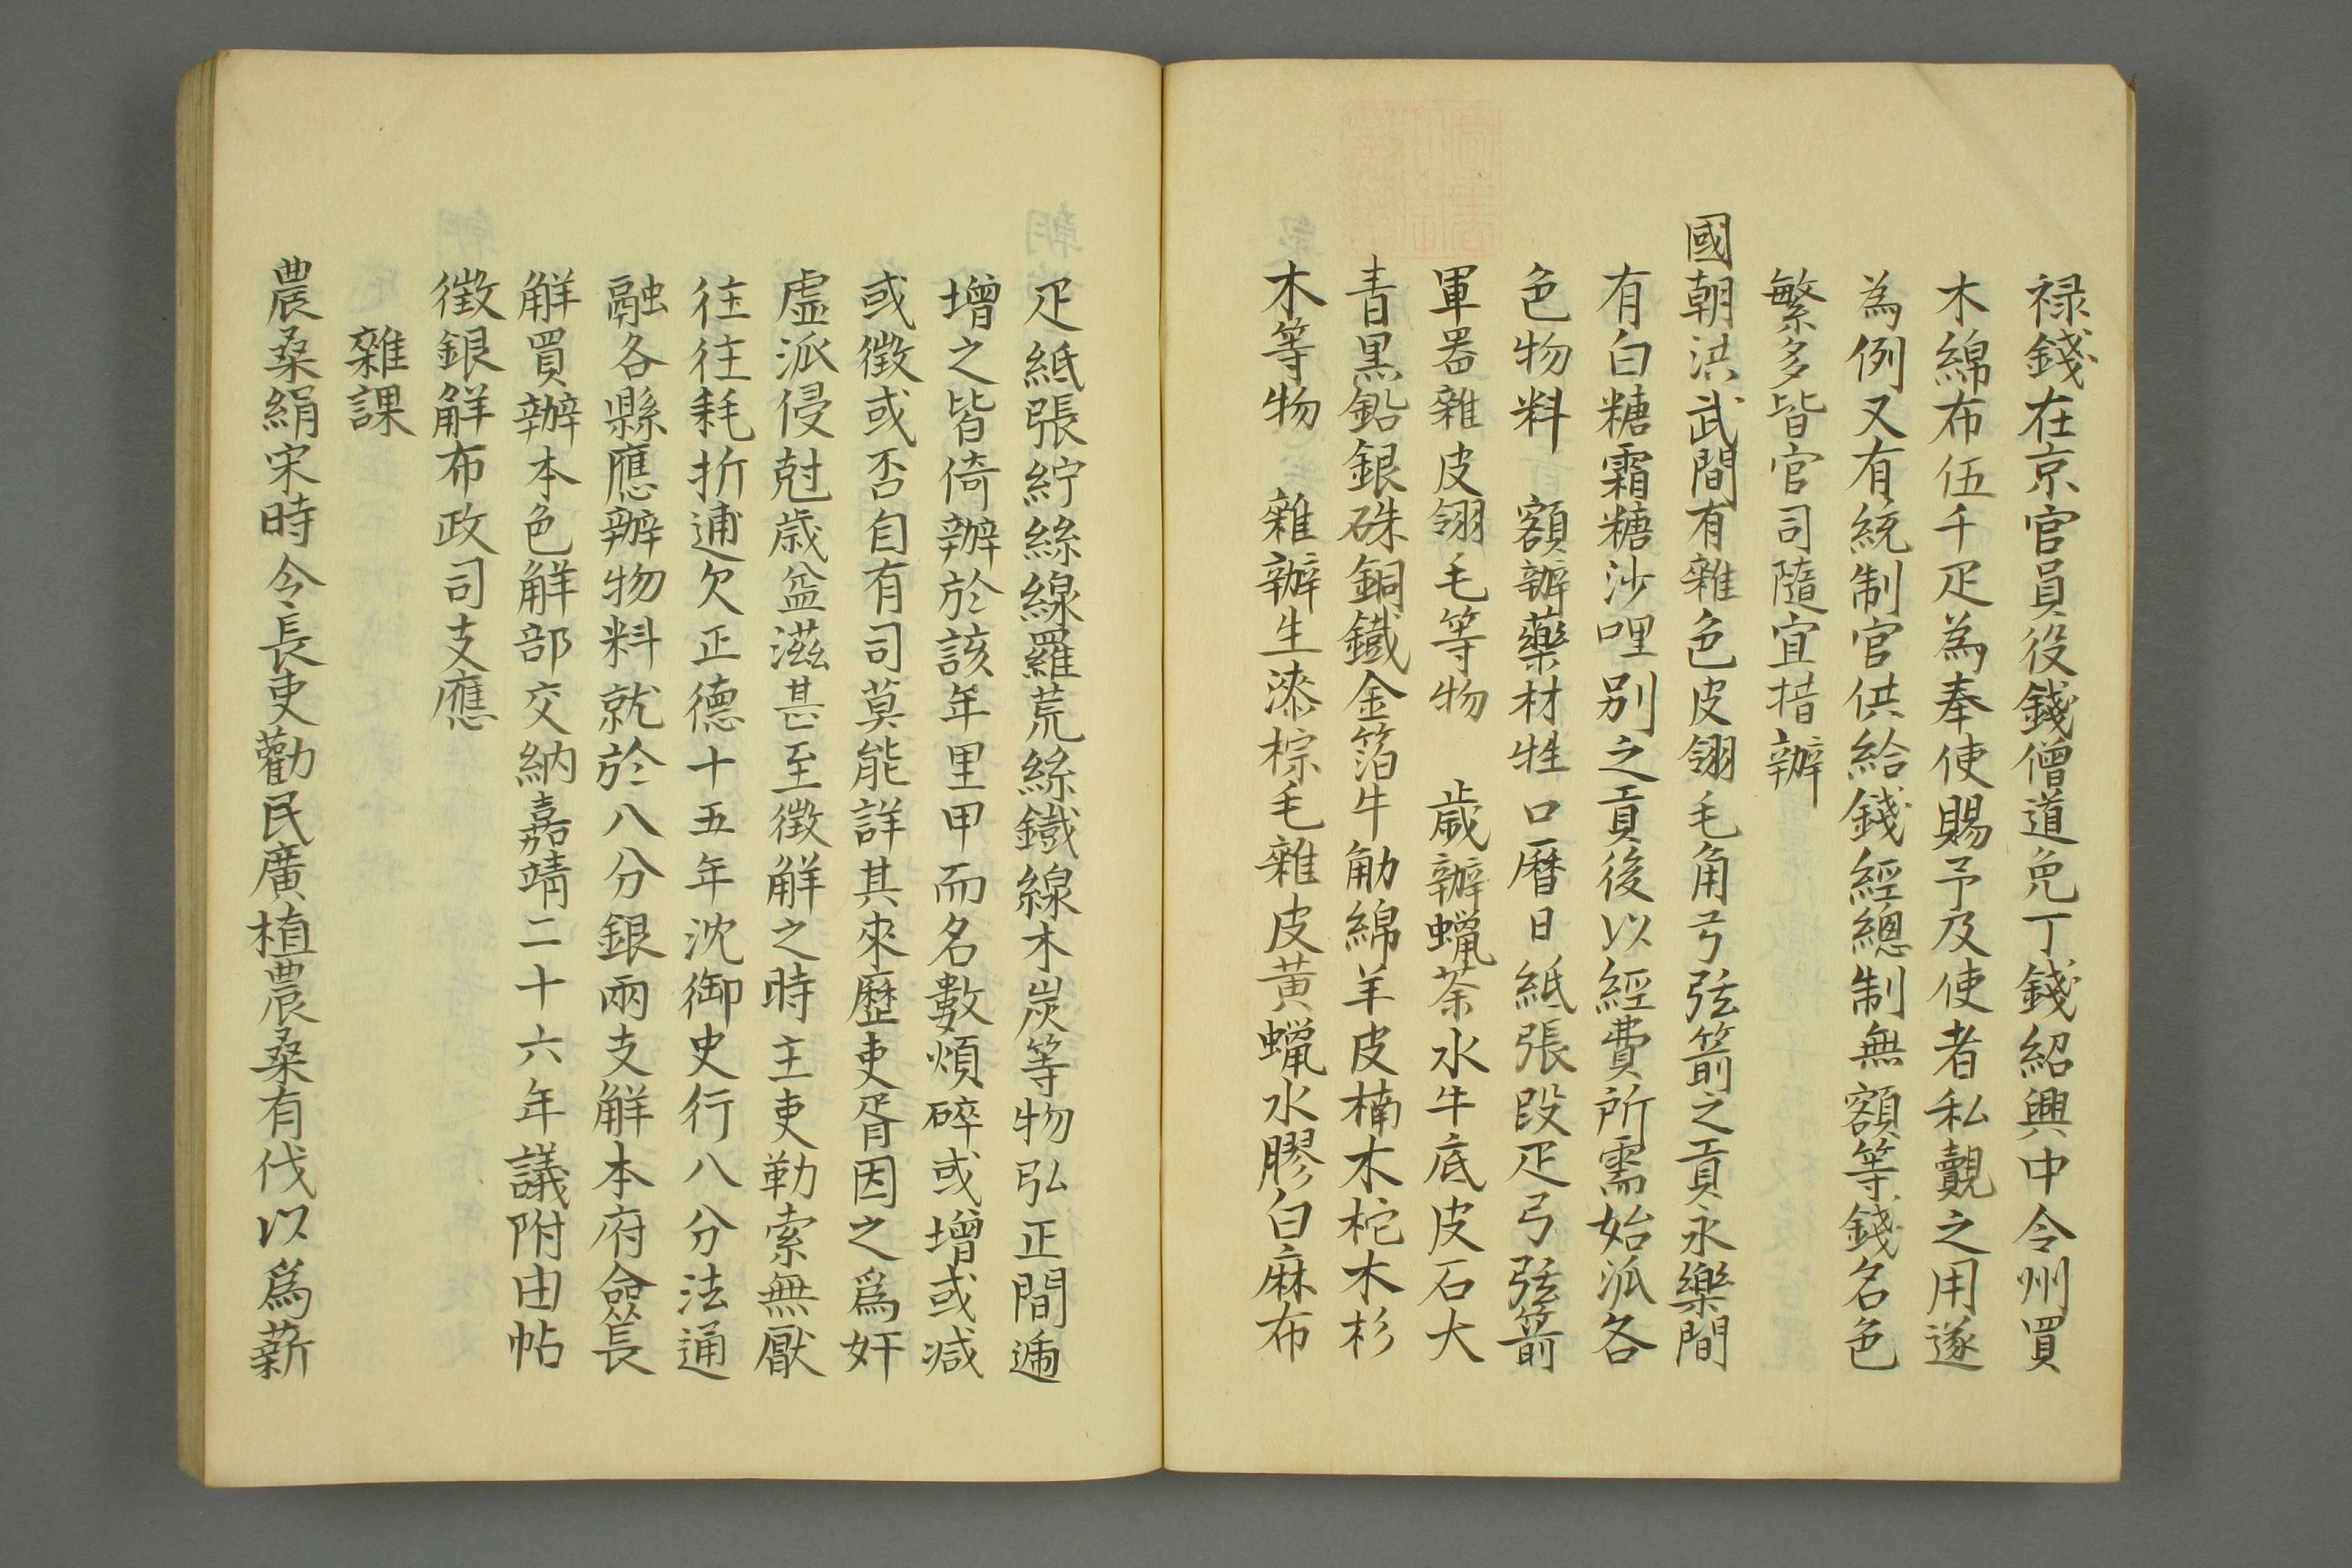 禄錢在京官員役錢僧道免丁錢紹興中令州買
木綿布伍千疋為奉使賜予及使者私覿之用遂
為例又有統制官供給錢經總制無額等錢名色
繁多皆官司隨宜措辦
國朝洪武間有雜色皮翎毛角弓弦箭之貢永樂間
有白糖霜糖沙哩別之貢後以經費所需始派各
色物料　額辦藥材牲口曆日紙張段疋弓弦箭
軍器雜皮翎毛等物　歲辦蠟茶水牛底皮石大
青黑鉛銀硃銅鐵金箔牛觔綿羊皮楠木柁木杉
木等物　雜辦生漆棕毛雜皮黃蠟水膠白麻布
疋紙張紵絲線羅荒絲鐵線木炭等物弘正間遞
增之皆倚辦於該年里甲而名數煩碎或增或減
或徵或否自有司莫能詳其來歷吏胥因之爲奸
虛派侵尅歲盆滋甚至徵解之時主吏勒索無厭
往往耗折逋欠正德十五年沈御史行八分法通
融各縣應辦物料就於八分銀兩支解本府僉長
解買辦本色解部交納嘉靖二十六年議附由帖
徵銀解布政司支應
雜課
農桑絹宋時令長吏勸民廣植農桑有伐以爲薪